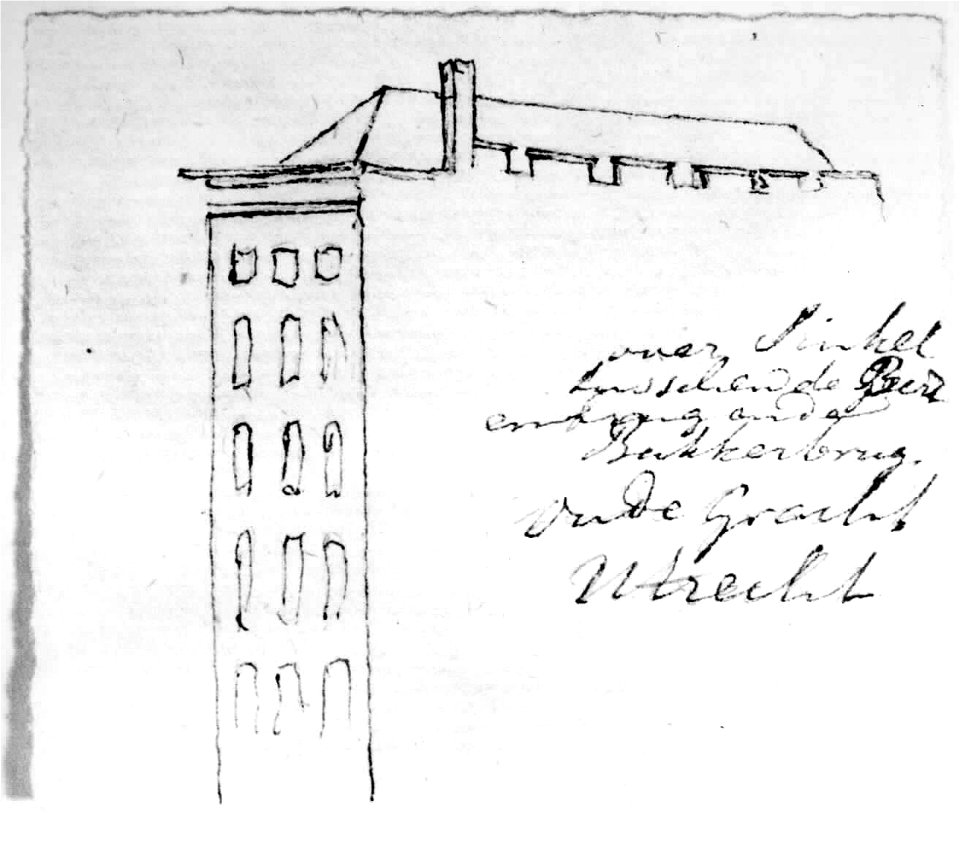 over Sinkel
tusschen de Bezem
brug en de
Bakkerbrug.
Oude Gracht
Utrecht